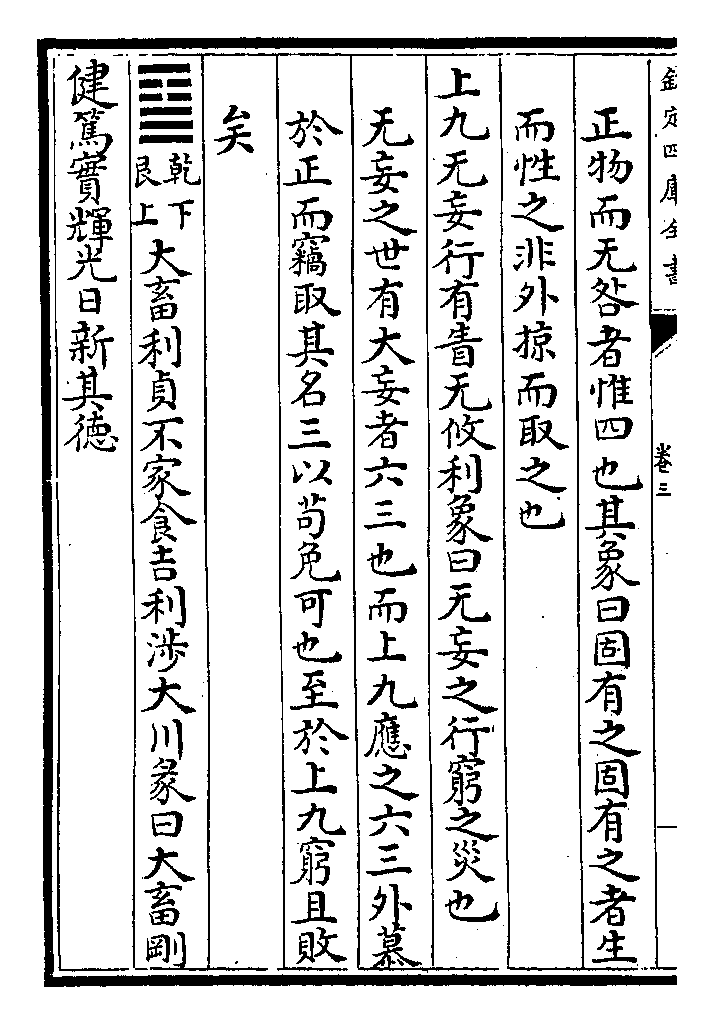 欽定四庫全書
卷三
正物而无咎者惟四也其象曰固有之固有之者生
而性之非外掠而取之也
上九无妄行有眚无攸利象曰无妄之行窮之災也
无妄之世有大妄者六三也而上九應之六三外慕
於正而竊取其名三以苟免可也至於上九窮且敗
矣
乾下艮上大畜利貞不家食吉利涉大川彖曰大畜剛
健篤實輝光日新其德